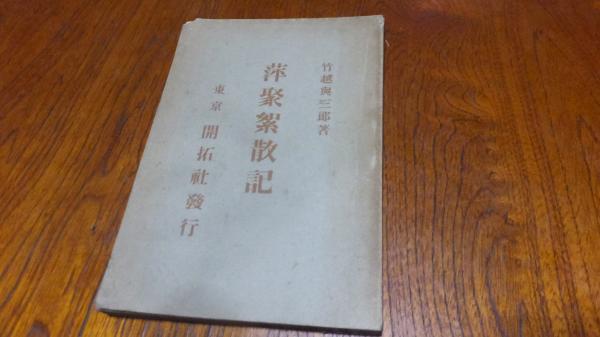 竹越與三郎著
萍聚絮散記
東京 開拓社發行